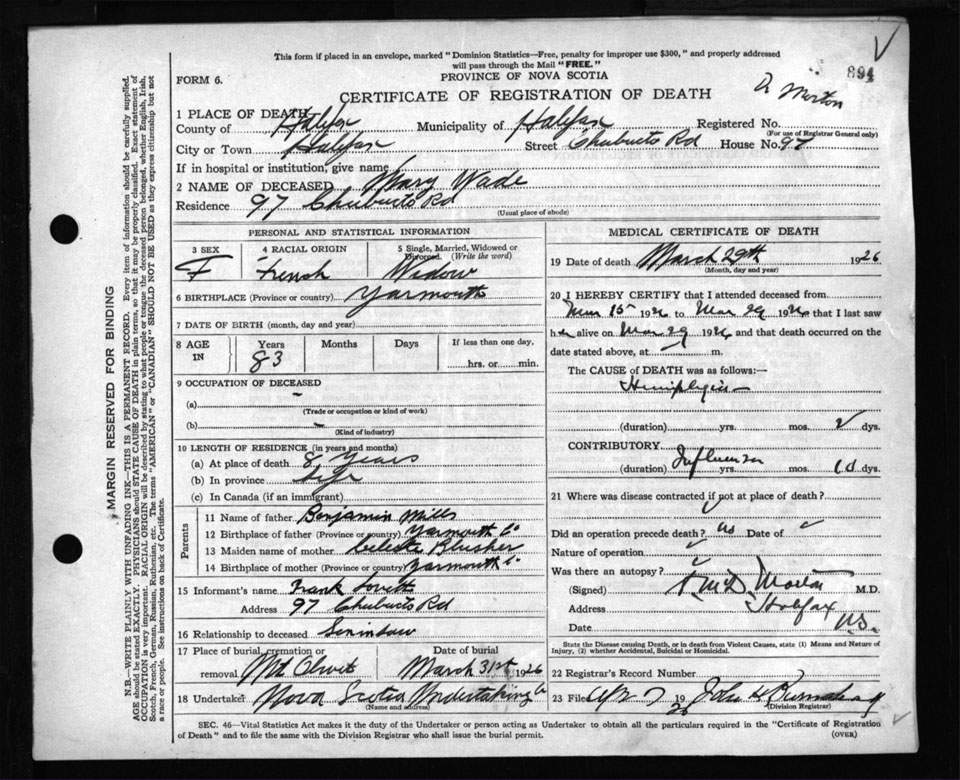 This form if placed in an envelope, marked "Dominion Statistics—Free, penalty for improper use $300," and properly addressed
will pass through the Mail "FREE."
894
FORM 6.
PROVINCE OF NOVA SCOTIA
CERTIFICATE OF REGISTRATION OF DEATH
D Morton
1 PLACE OF DEATH
County of Halifax Municipality of Halifax Registered No.
(For use of Registrar General only)
City or Town Halifax Street Chebucto Rd House No. 97
If in hospital or institution, give name
2 NAME OF DECEASED Mary Wade
Residence 97 Chebucto Rd
(Usual place of abode)
PERSONAL AND STATISTICAL INFORMATION
3 SEX 4 RACIAL ORIGIN 5 Single, Married, Widowed or
Divorced. (Write the word)
F French Widow
6 BIRTHPLACE (Province or country) Yarmouth
7 DATE OF BIRTH (month, day and year)
8 AGE IN Years Months Days If less than one day,
83 hrs. or min.
9 OCCUPATION OF DECEASED
(a) -
(Trade or occupation or kind of work)
(b) -
(Kind of industry)
10 LENGTH OF RESIDENCE (in years and months)
(a) At place of death 8 years
(b) In province life
(c) In Canada (if an immigrant)
Parents
11 Name of father Benjamin Mills
12 Birthplace of father (Province or country) Yarmouth Co
13 Maiden name of mother Celeste
14 Birthplace of mother (Province or country) Yarmouth
15 Informant's name Frank Lovett
Address 97 Chebucto Rd
16 Relationship to deceased Soninlaw
17 Place of burial, cremation or Date of burial
removal Mt Olivet March 31st 1926
18 Undertaker Nova Scotia Undertaking Co
(Name and address)
MEDICAL CERTIFICATE OF DEATH
19 Date of death March 29th 1926
(Month, day and year)
20 I HEREBY CERTIFY that I attended deceased from
Mar 15 1926 to Mar 29 1926 that I last saw
her alive on Mar 29 1926 and that death occurred on the
date stated above, at m.
The CAUSE of DEATH was as follows:—
Hemiplegia
(duration) yrs. mos. 2 dys.
CONTRIBUTORY Influenza
(duration) yrs. mos. dys.
21 Where was disease contracted if not at place of death?
Did an operation precede death? Date of
Nature of operation
Was there an autopsy?
(Signed) Morton M.D.
Address Halifax
Date N.S.
State the Disease causing Death, or in death from Violent Causes, state (1) Means and Nature of
Injury, (2) whether Accidental, Suicidal or Homicidal.
22 Registrar's Record Number
23 Filed 19 26 John
(Division Registrar)
SEC. 46—Vital Statistics Act makes it the duty of the Undertaker or person acting as Undertaker to obtain all the particulars required in the "Certificate of Registration
of Death" and to file the same with the Division Registrar who shall issue the burial permit.
(OVER)
MARGIN RESERVED FOR BINDING
N.B.—WRITE PLAINLY WITH UNFADING INK—THIS IS A PERMANENT RECORD. Every item of information should be carefully supplied.
AGE should be stated EXACTLY. PHYSICIANS should STATE CAUSE OF DEATH in plain terms, so that it may be properly classified. Exact statement of
OCCUPATION is very important. RACIAL ORIGIN will be described by stating to what people or tongue the deceased person belonged, whether English, Irish,
Scotch, French, German, Russian, Ruthenian, etc. The terms "AMERICAN" or "CANADIAN" SHOULD NOT BE USED as they express citizenship but not
a race or people. See instructions on back of Certificate.